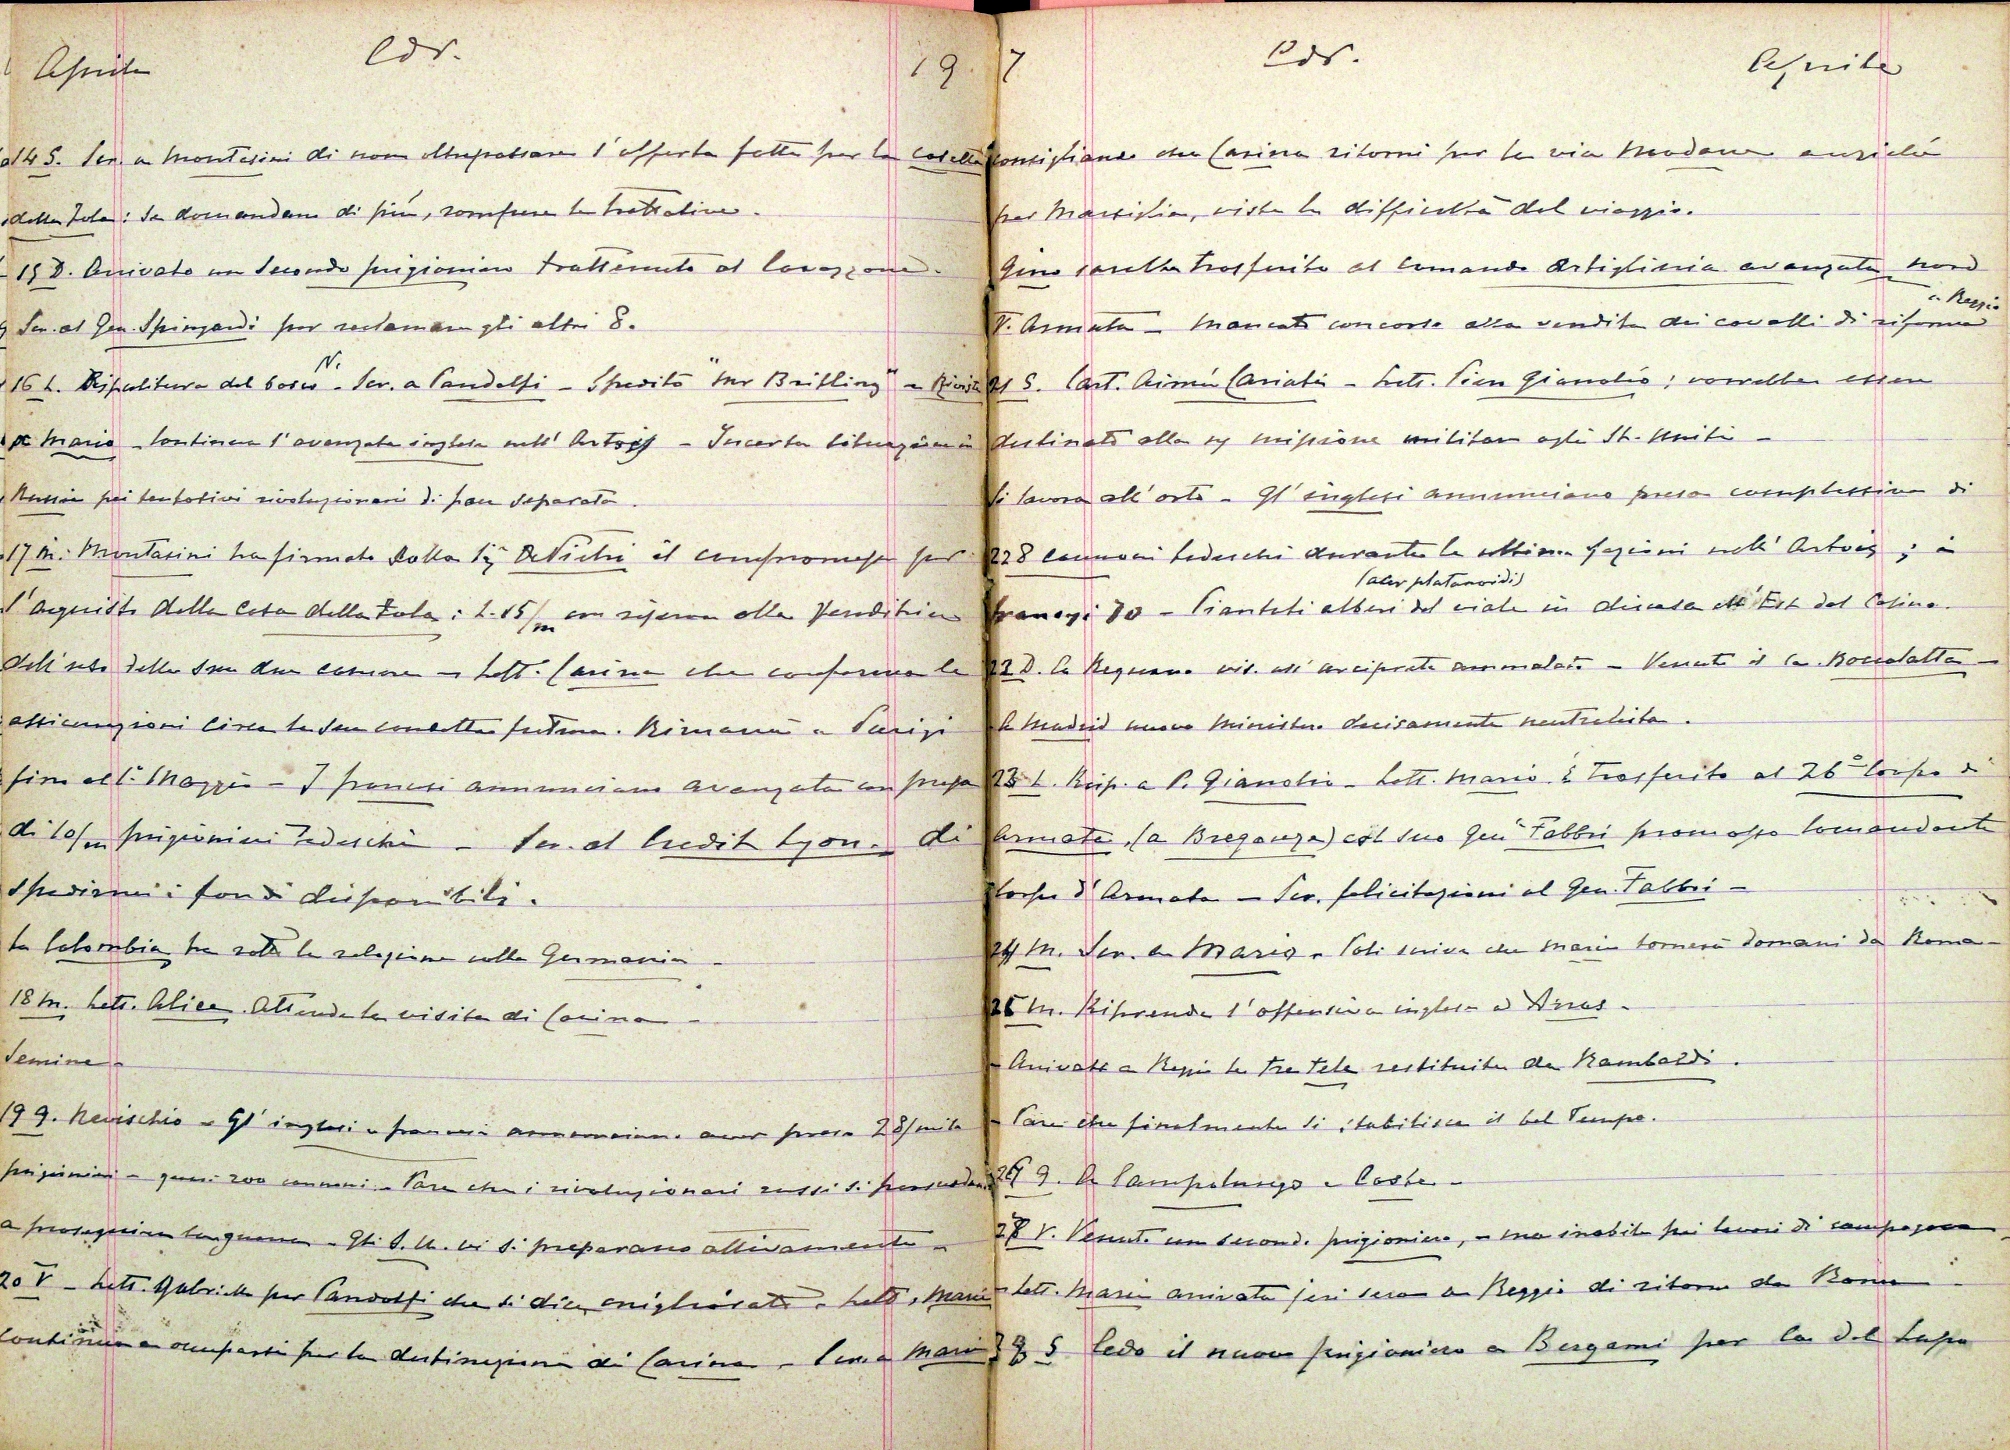 Aprile Cdr. 19
14 S. Scr. a Montasini di non oltrepassare l'offerta fatta per la casetta
della Zola: se domandano di più, rompere le trattative.
15 D. Arrivato un secondo prigioniero trattenuto al Cavazzone.
Scr. al Gen. Spingardi per reclamare gli altri 8.
N.
16 L. Ripulitura del bosco - Scr. a Pandolfi - Spedito "Mr Britling" e Riviste
a Mario - Continua l'avanzata inglese nell'Artois - Incerta situazione in
Russia pei tentativi rivoluzionari di pace separata.
17 M. Montasini ha firmato colla Sig. De Pietri il compromesso per
l'acquisto della Casa della Zola: L. 15/m con riserva alla Venditrice
dell'uso delle sue due camere - Lett. Carina che conferma le
assicurazioni circa la sua condotta futura. Rimarrà a Parigi
fino al 1° Maggio - I francesi annunciano avanzata con presa
di 10/m prigionieri tedeschi - Scr. al Credit Lyon. di
spedirmi i fondi disponibili.
La Colombia ha rotto le relazioni colla Germania -
18 M. Lett. Alice. Attende la visita di Carina -
Semine -
19 G. Nevischio - Gl'inglesi e francesi annunciano aver preso 28/mila
prigionieri - quasi 200 cannoni - Pare che i rivoluzionari russi si persuadano
a proseguire la guerra - Gli S. U. vi si preparano attivamente -
20 V - Lett. Gabriella per Pandolfi che si dice migliorato - Lett. Mario
continua a occuparsi per la destinazione di Carina - Scr. a Mario
7 Cdr. Aprile
consigliando che Carina ritorni per la via Modane anziché
per Marsiglia, viste le difficoltà del viaggio.
Gino sarebbe trasferito al Comando Artiglieria avanzata nord
a Reggio
V. Armata - Mancato concorso alla vendita dei cavalli di riforma
21 S. Cart. Aimée Cariati - Lett. Piero Gianolio; vorrebbe essere
destinato alla missione militare agli St. Uniti -
Si lavora all'orto - Gl'inglesi annunciano presa complessiva di
228 cannoni tedeschi durante le ultime fazioni nell'Artois; i
(acer platanoidi)
francesi 70 - Piantati alberi del viale in discesa all'Est del Casino.
22 D. A Regnano vis. all'arciprete ammalato - Venuto il Cav. Boccolatta -
A Madrid nuovo Ministero decisamente neutralista.
23 L. Risp. a P. Gianolio - Lett. Mario. È trasferito al 26° Corpo di
Armata, (a Breganze) col suo Gen. Fabbri promosso Comandante
Corpo d'Armata - Scr. felicitazioni al Gen. Fabbri -
24 M. Scr. a Mario - Poli scrive che Maria tornerà domani da Roma -
25 M. Riprende l'offensiva inglese ad Arras -
- Arrivate a Reggio le tre tele restituite da Rambaldi.
- Pare che finalmente si stabilisca il bel tempo.
26 G. A Campolungo e Coste -
27 V. Venuto un secondo prigioniero, - ma inabile pei lavori di campagna -
- Lett. Maria arrivata jeri sera a Reggio di ritorno da Roma -
28 S Cedo il nuovo prigioniero a Bergami per la Del Lupo